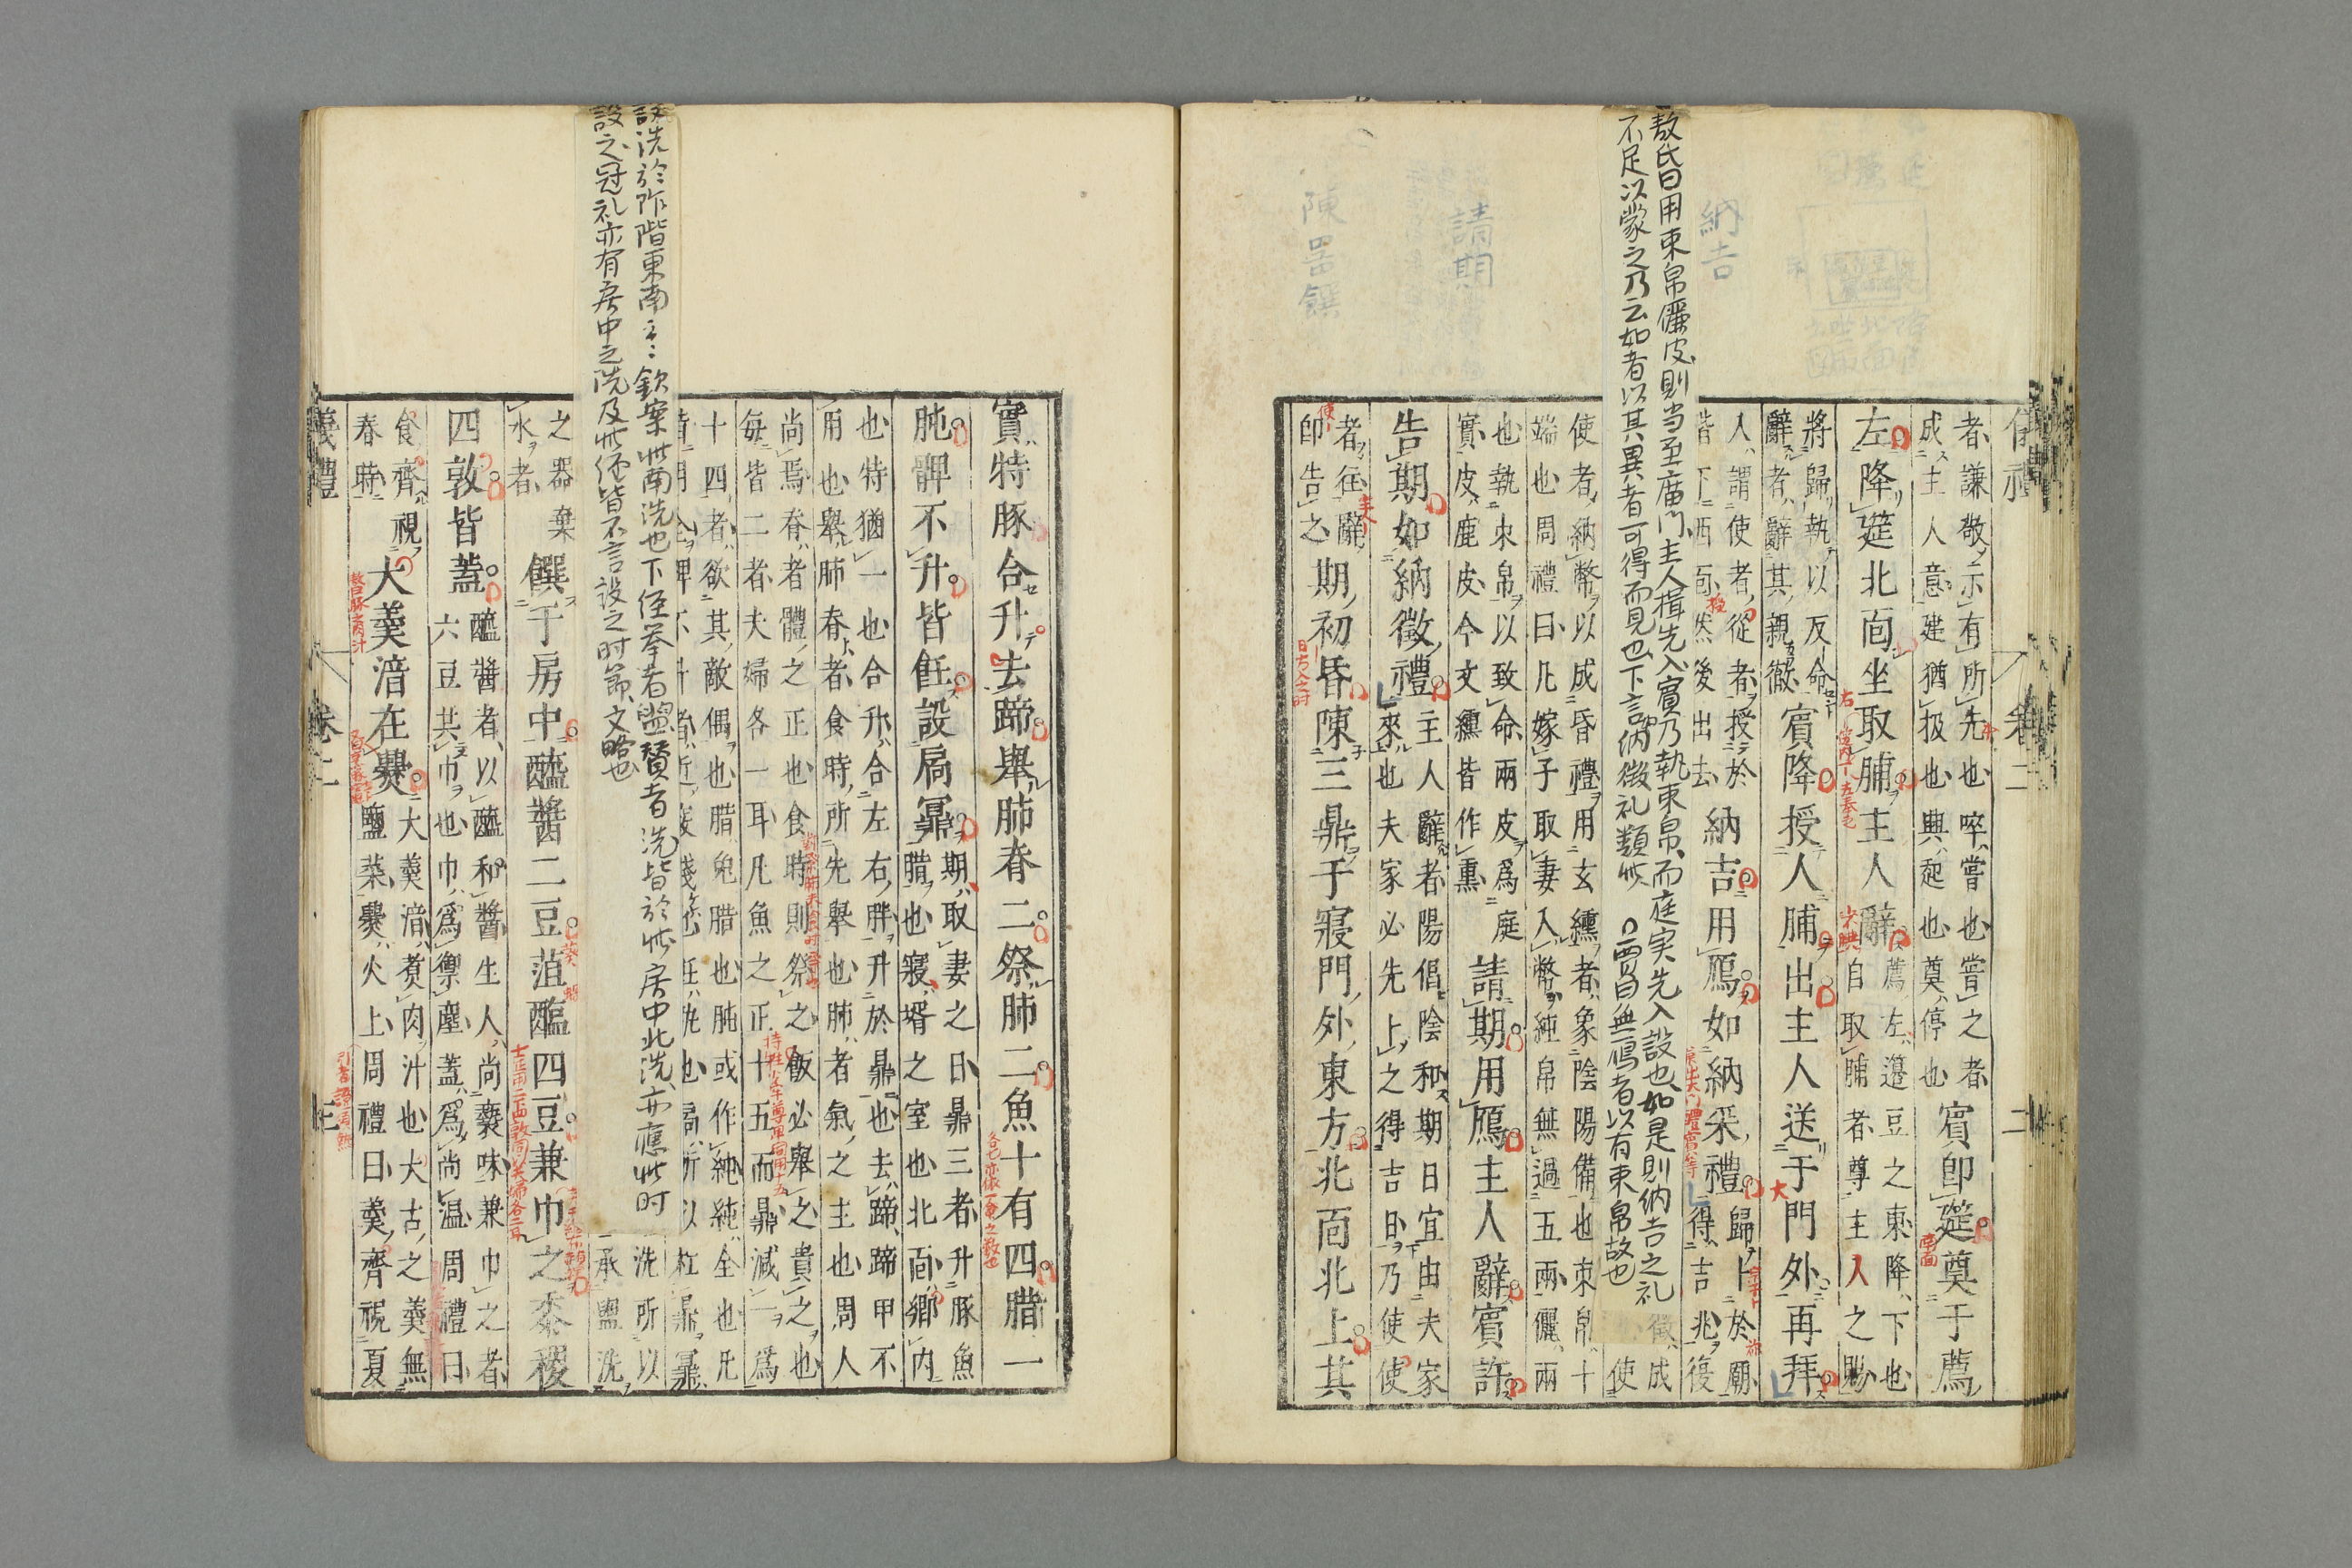 儀禮 卷二 二
者謙敬示有所先也啐嘗也嘗之者
成主人意建猶扱也興起也奠停也
賓即筵奠于薦
左降筵北面坐取脯主人辭
薦左籩豆之東降下也
自取脯者尊主人之賜
將歸執以反命
辭者辭其親徹
賓降授人脯出主人送于門外再拜
人謂使者從者授於
階下西面然後出去
納吉
納吉用鴈如納采禮
歸卜於廟
得吉兆復
敖氏曰用束帛儷皮則当至廟門主人揖先入賓乃執束帛而庭実先入設也如是則納吉之礼
不足以蒙之乃云如者以其異者可得而見也下言納徵礼類此 〇賈曰無鴈者以有束帛故也
徵成
使
使者納幣以成昏禮用玄纁者象陰陽備也束帛十
端也周禮曰凡嫁子取妻入幣純帛無過五兩儷兩
也執束帛以致命兩皮爲庭
實皮鹿皮今文纁皆作熏
請期
請期用鴈主人辭賓許
告期如納徵禮
主人辭者陽倡陰和期日宜由夫家
來也夫家必先上之得吉日乃使使
者往辭
即告之
陳器饌
期初昏陳三鼎于寢門外東方北面北上其
實特豚合升去蹄舉肺脊二祭肺二魚十有四腊一
肫髀不升皆飪設扃鼏
期取妻之日鼎三者升豚魚
腊也寢壻之室也北面鄉内
也特猶一也合升合左右胖升於鼎也去蹄蹄甲不
用也舉肺脊者食時所先舉也肺者氣之主也周人
尚焉脊者體之正也食時則祭之飯必舉之貴之也
每皆二者夫婦各一耳凡魚之正十五而鼎減一爲
十四者欲其敵偶也腊兔腊也肫或作純純全也凡
扃所以扛鼎鼏
設洗於阼階東南云云 欽案此南洗也下経奉者盥賛者洗皆於此房中北洗亦應此时
設之冠礼亦有房中之洗及此経皆不言設之时節文略也
洗所以
承盥洗
之器棄
水者
饌于房中醯醬二豆菹醢四豆兼巾之黍稷
四敦皆蓋
醯醬者以醯和醬生人尚褻味兼巾之者
六豆共巾也巾爲禦塵蓋爲尚温周禮曰
食齊視
春時
大羹湆在爨
大羹湆煑肉汁也大古之羹無
鹽菜爨火上周禮曰羹齊視夏
儀禮 卷二 三